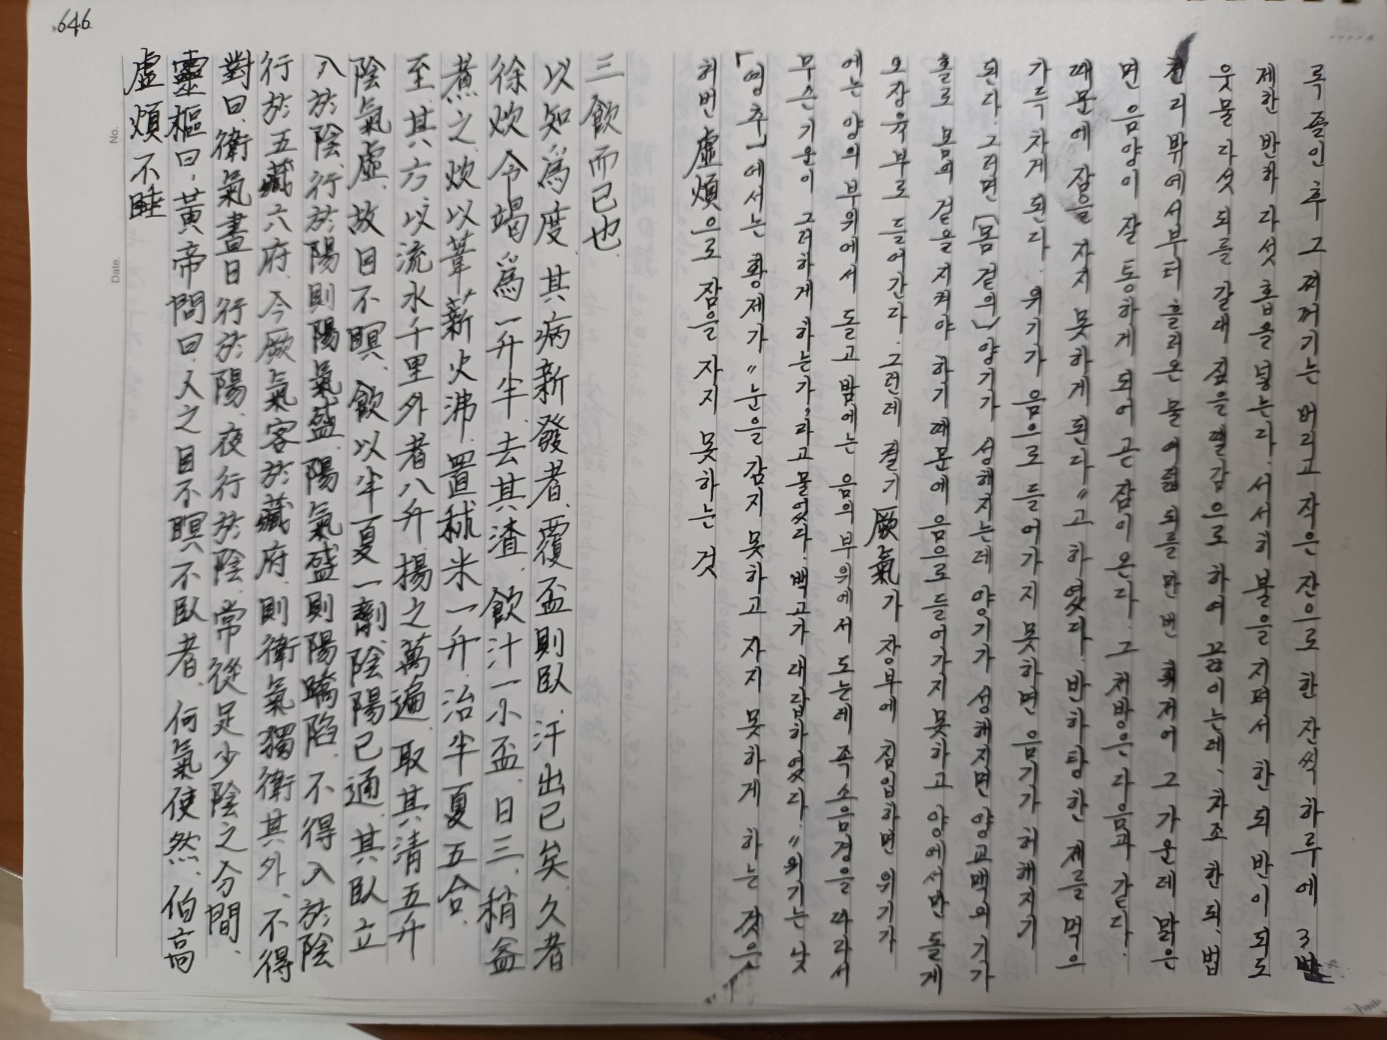 646
No.
Date.
虛煩不睡
靈樞曰, 黃帝問曰, 人之目不瞑不臥者, 何氣使然, 伯高
對曰, 衛氣晝日行於陽, 夜行於陰, 常從足少陰之分間,
行於五藏六府, 今厥氣客於藏府, 則衛氣獨衛其外, 不得
入於陰, 行於陽則陽氣盛, 陽氣盛則陽蹻陷, 不得入於陰
陰氣虛, 故目不瞑, 飮以半夏一劑, 陰陽已通, 其臥立
至其方, 以流水千里外者八升揚之萬遍, 取其淸五升
煮之, 炊以葦薪火沸, 置秫米一升, 治半夏五合,
徐炊令竭爲一升半, 去其渣, 飮汁一小盃, 日三, 稍益
以知爲度, 其病新發者, 覆盃則臥, 汗出已矣, 久者
三飮而已也.
허번虛煩으로 잠을 자지 못하는 것
「영추」에서는 황제가 "눈을 감지 못하고 자지 못하게 하는 것은
무슨 기운이 그러하게 하는가"라고 물었다. 백고가 대답하였다. "위기는 낮
에는 양의 부위에서 돌고 밤에는 음의 부위에서 도는데 족소음경을 따라서
오장육부로 들어간다. 그런데 궐기厥氣가 장부에 침입하면 위기가
홀로 몸의 겉을 지켜야 하기 때문에 음으로 들어가지 못하고 양에서만 돌게
된다. 그러면 [몸 겉의] 양기가 성해지는데 양기가 성해지면 양교맥의 기가
가득 차게 된다. 위기가 음으로 들어가지 못하면 음기가 허해지기
때문에 잠을 자지 못하게 된다"고 하였다. 반하탕 한 제를 먹으
면 음양이 잘 통하게 되어 곧 잠이 온다. 그 처방은 다음과 같다.
천 리 밖에서부터 흘러온 물 여덟 되를 만 번 휘저어 그 가운데 맑은
웃물 다섯 되를 갈대 짚을 땔감으로 하여 끓이는데, 차조 한 되, 법
제한 반하 다섯 홉을 넣는다. 서서히 불을 지펴서 한 되 반이 되도
록 졸인 후 그 찌꺼기는 버리고 작은 잔으로 한 잔씩 하루에 3번